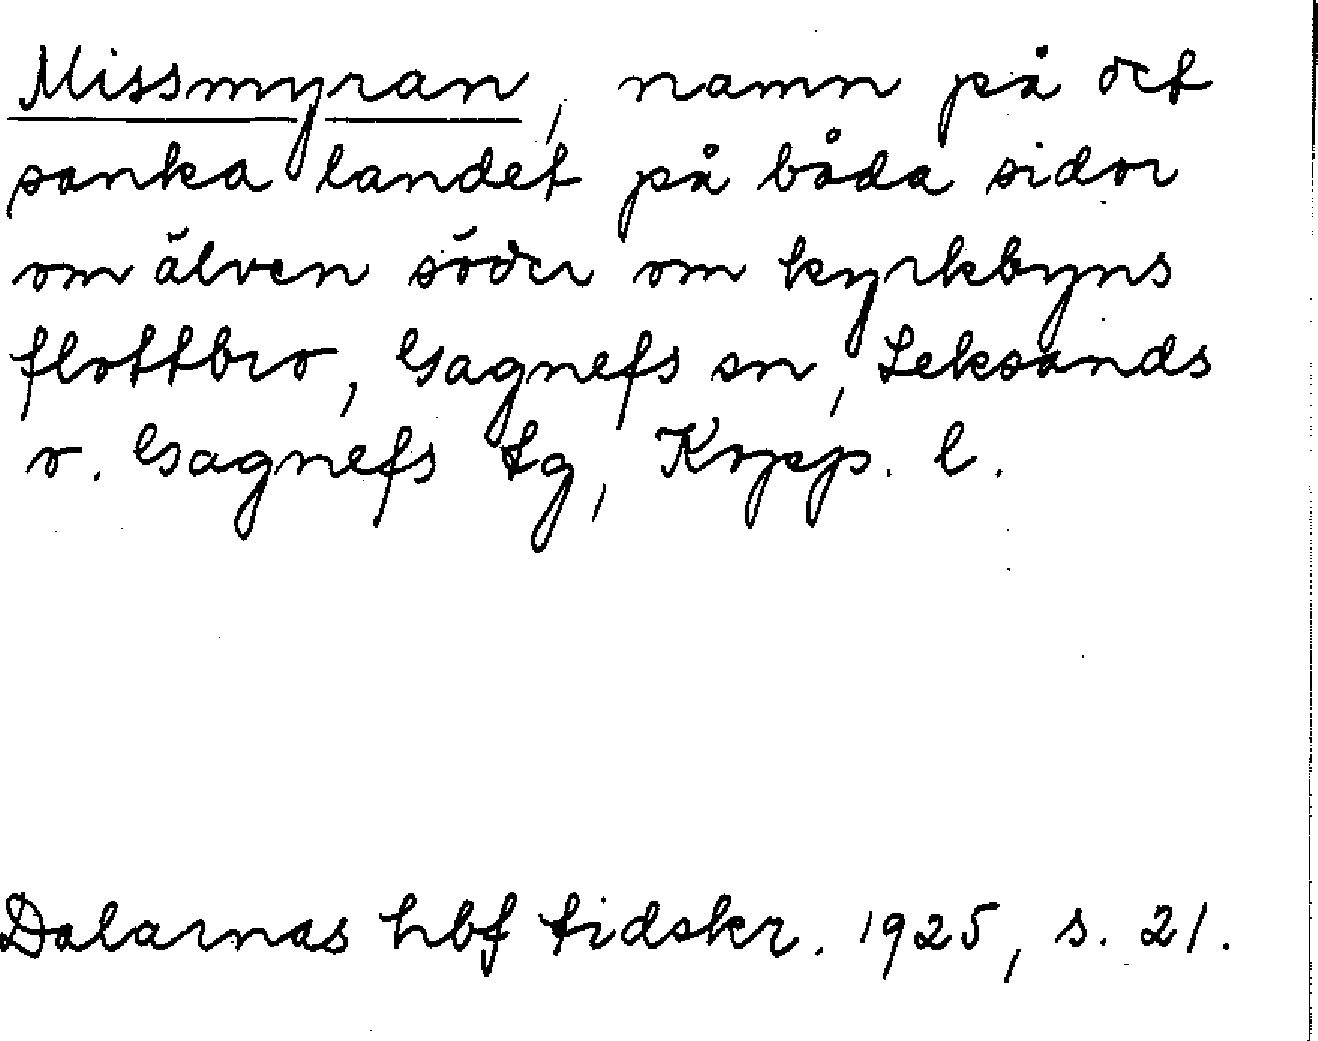 Missmyran, namn på det
sanka landet på båda sidor
om älven söder om kyrkbyns
flottbro, Gagnefs sn, Leksands
o. Gagnefs tg, Kopp. l.
Dalarnas hbf tidskr. 1925, s. 21.